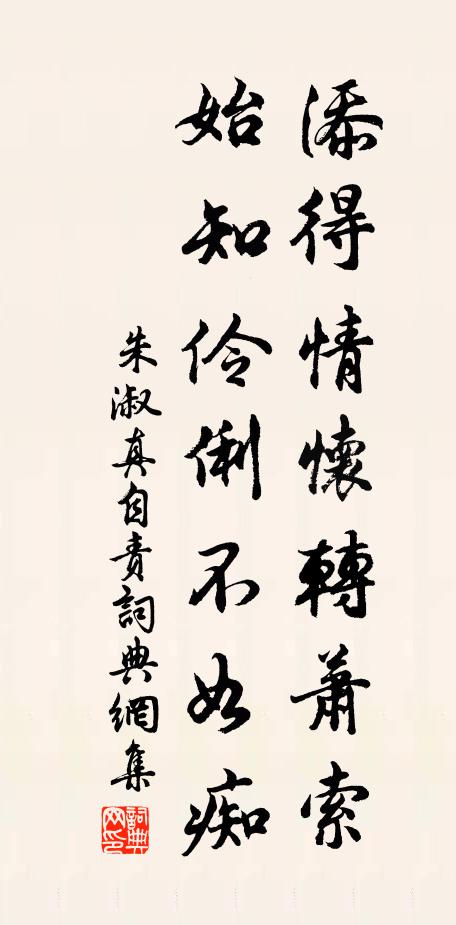 添得情懷轉蕭索
始知伶俐不如痴
朱淑真自責詞典網集
詞典網印